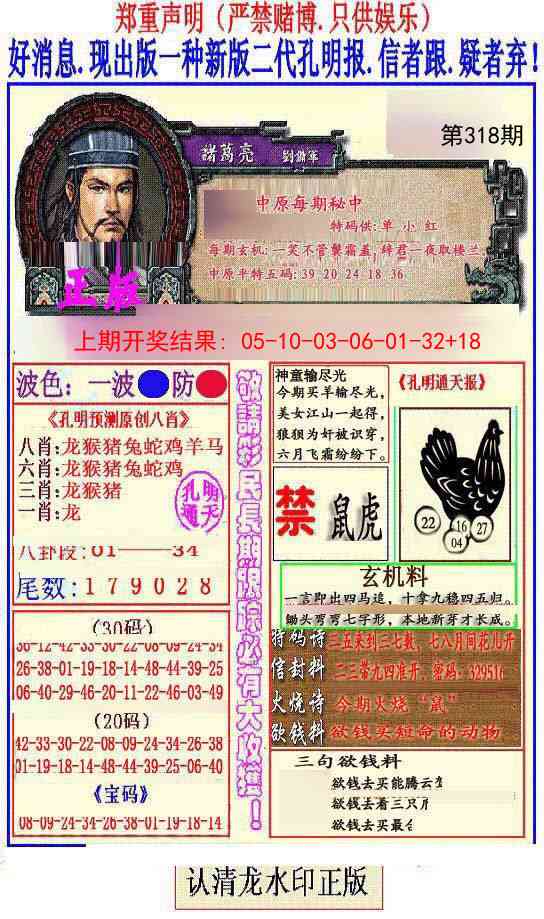 郑重声明（严禁赌博.只供娱乐）
好消息.现出版一种新版二代孔明报.信者跟.疑者弃!
第318期
諸葛亮 劉備軍
中原每期秘中
特码供:单小红
每期玄机:一笑不管襲霜盖,辞君一夜取楼兰.
中原平特五码:39 20 24 18 36
正版
上期开奖结果: 05-10-03-06-01-32+18
波色：一波 防
《孔明预测原创八肖》
八肖:龙猴猪兔蛇鸡羊马
六肖:龙猴猪兔蛇鸡
三肖:龙猴猪
一肖:龙
孔明通天
八卦段:01——34
尾数:179028
(30码)
36-12-42-33-30-22-08-09-24-34
26-38-01-19-18-14-48-44-39-25
06-40-29-46-20-11-22-46-03-49
(20码)
42-33-30-22-08-09-24-34-26-38
01-19-18-14-48-44-39-25-06-40
《宝码》
08-09-24-34-26-38-01-19-18-14
敬請彩民長期跟踪必有大收獲！
神童输尽光
今期买羊输尽光，
美女江山一起得，
狼狈为奸被识穿，
六月飞霜纷纷下。
《孔明通天报》
22 16 27
04
禁 鼠虎
玄机料
一言即出四马追，十拿九稳四五归。
锄头弯弯七字形，本地新芽才长成。
特码诗 三五来到三七数，七八月间花儿开
信封料 二三带九四准开，密码：329516
火烧诗 今期火烧“鼠”
欲钱料 欲钱买短命的动物
三句欲钱料
欲钱去买能腾云
欲钱去看三只
欲钱去买最
认清龙水印正版